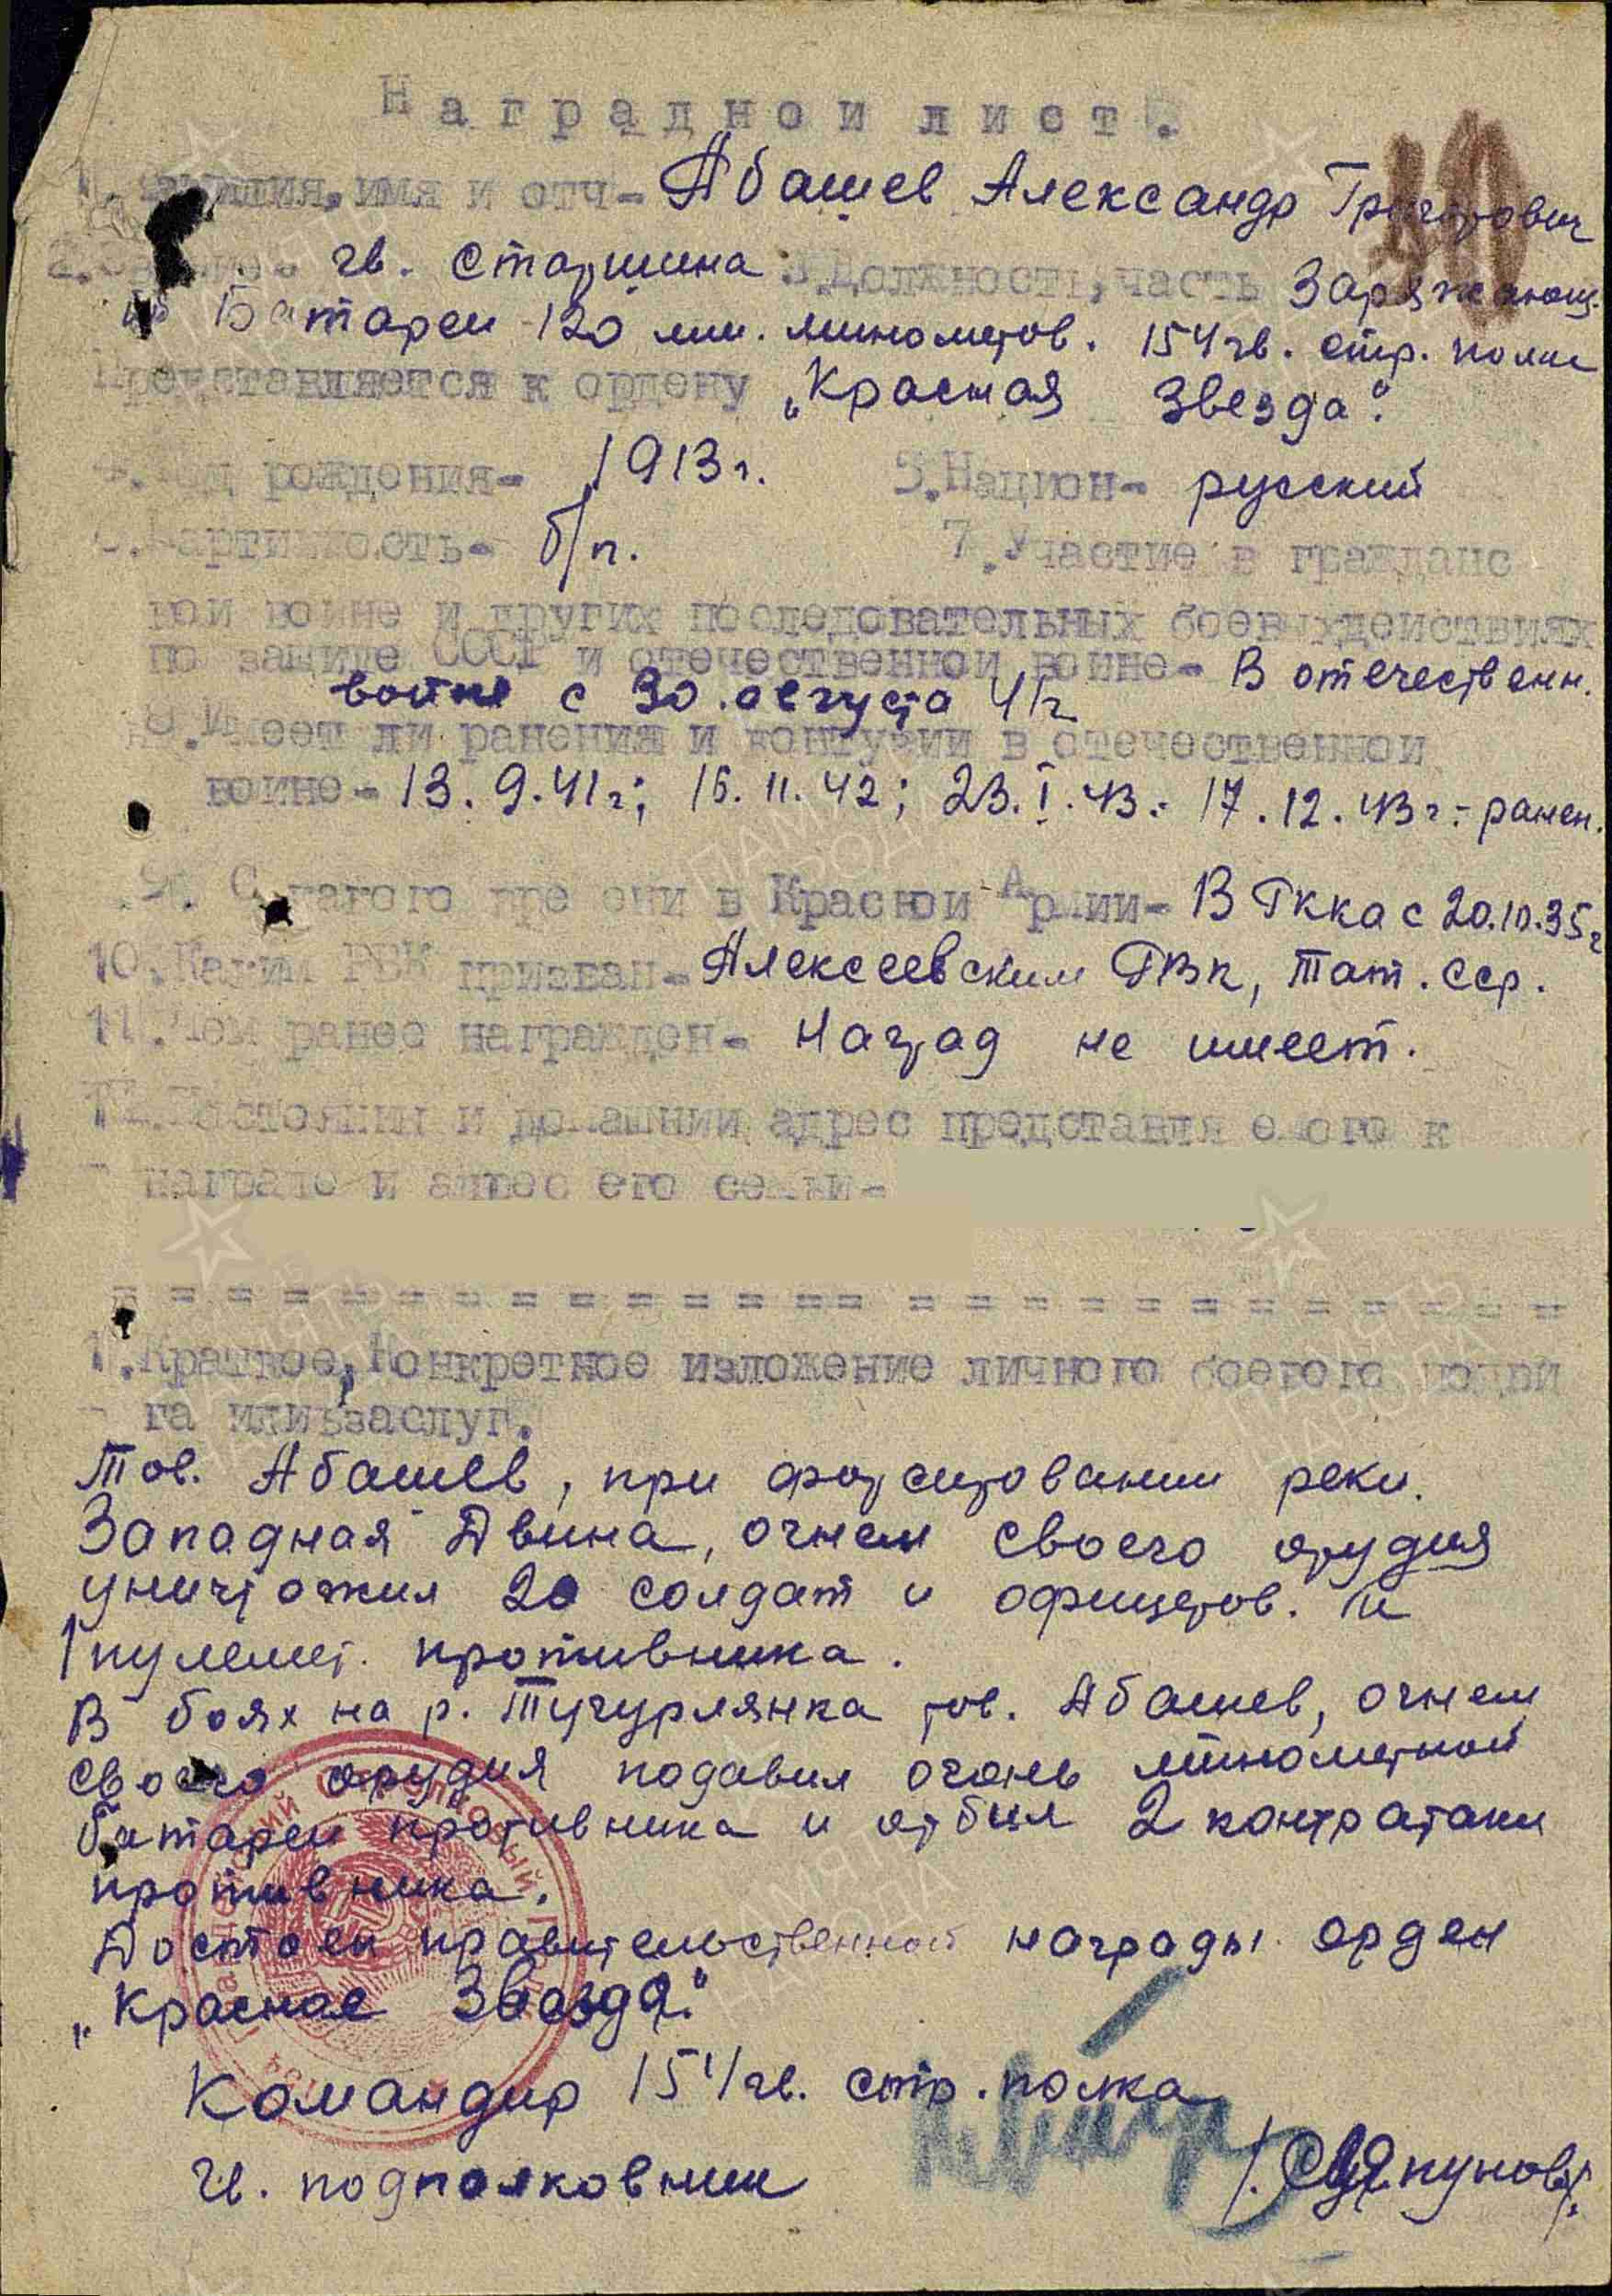 Наградной лист.
1. Фамилия, имя и отч- Абашев Александр Григорович
2. Звание- гв. старшина 3. Должность, часть Заряжающ.
Батареи 120 мм. минометов. 154 гв. стр. полка
Представляется к ордену „Красная Звезда".
4. Год рождения- 1913 г. 5. Национ- русский
6. Партийность- б/п. 7. Участие в гражданс
кой войне и других последовательных боевых действиях
по защите СССР и отечественной войне- В отечественн.
войне с 30. августа 41г
8. Имеет ли ранения и контузии в отечественной
войне- 13. 9. 41г; 16. 11. 42; 23. I. 43.- 17. 12. 43 г:- ранен.
9. С какого времени в Красной Армии- В РККА с 20.10.35г
10. Каким РВК призван- Алексеевским РВК, Тат. сср.
11. Чем ранее награжден- Наград не имеет.
12. Постоянный домашний адрес представляемого к
награде и адрес его семьи-
= = = = = = = = = = = = = = = = = = = = = = = = =
1. Краткое, конкретное изложение личного боевого подви
- га или заслуг.
Тов. Абашев, при форсировании реки
Западная Двина, огнем своего орудия
уничтожил 20 солдат и офицеров. и
1 пулемет. противника.
В боях на р. Тучурлянка тов. Абашев, огнем
своего орудия подавил огонь минометной
батареи противника и отбил 2 контратаки
противника.
Достоен правительственной награды орден
„Красная Звезда."
Командир 154 гв. стр. полка
гв. подполковник
ПАМЯТЬ
НАРОДА